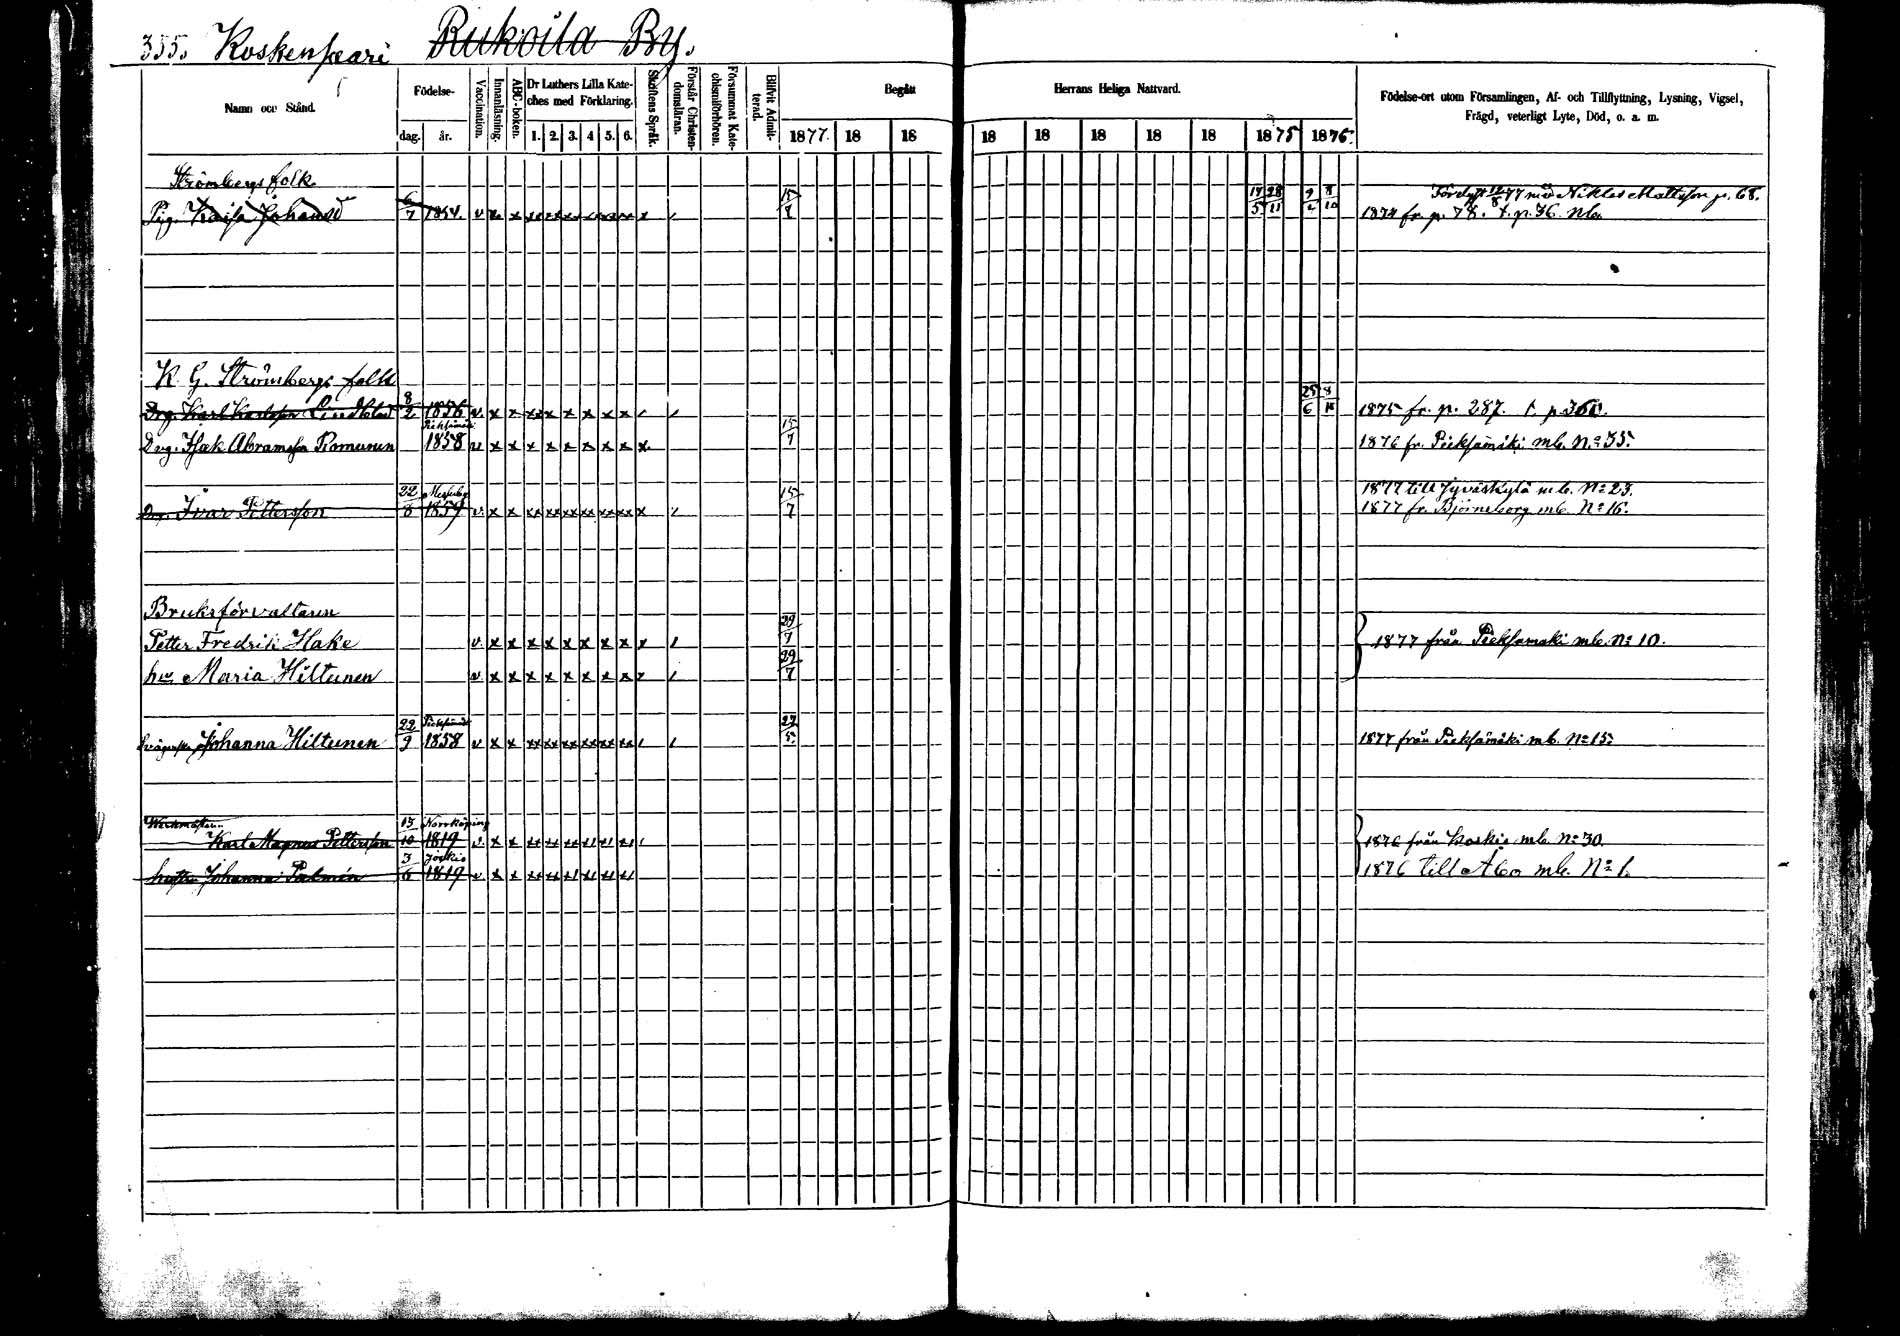 355. Koskensaari Rukoila By.
Namn och Stånd. Födelse- dag. år. Vaccination. Innanläsning. ABC-boken. Dr Luthers Lilla Kate-ches med Förklaring. 1. 2. 3. 4 5. 6. Skriftens Språk. Förstår Christen-domsläran. Försummat Kate-chismiförhören. Blifvit Admit-terad. Begått 1877. 18 18
Herrans Heliga Nattvard. 18 18 18 18 18 1875 1876.
Födelse-ort utom Församlingen, Af- och Tillflyttning, Lysning, Vigsel,
Frägd, veterligt Lyte, Död, o. a. m.
Strömbergs folk
Pig. Kaisa Johansd 6/7 1854. v x x 15/7 17/5 28/11 9/4 8/10 77 med Niklas Mattsson p. 68.
1874 fr. p. 78. t. p. 36.
K. G. Strömbergs folk
Drg. Karl Karlsson Lindblad 8/2 1856 v. x x x x x x x x 25/6 8/ 1875 fr. p. 287. t. p. 360.
Drg. Isak Abramsson Romunen Pieksämäki 1858 v x x x x x x x x x 15/7 1876 fr. Pieksämäki mb. No 35.
1877 till Jyväskylä mb. No 23.
Drg. Ivar Pettersson 22/8 1859 v. x x 15/7 1877 fr. Björneborg mb. No 16.
Bruksförvaltaren
Petter Fredrik Hake v. x x x x x x x x x 29/7 1877 från Pieksamaki mb. No 10.
hu Maria Hiltunen v x x x x x x x x 29/7
Johanna Hiltunen 22/9 Pieksämäki 1858 v x x 27/5. 1877 från Pieksämäki mb. No 15.
Werkmästaren
Karl Magnus Pettersson 13/10 Norrköping 1819 v. x x 1876 från Koskis mb. No 30.
hustru Johanna Palmén 3/6 Jockis 1819 v x x 1876 till Åbo mb. No 1.